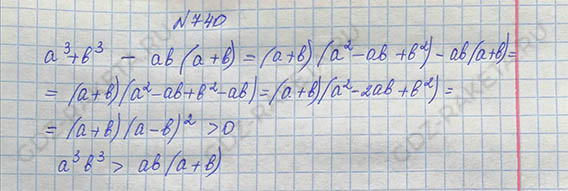 №740
a³+b³ - ab(a+b) = (a+b)(a²-ab+b²)-ab(a+b)=
= (a+b)(a²-ab+b²-ab)=(a+b)(a²-2ab+b²)=
= (a+b)(a-b)²>0
a³b³ > ab(a+b)
GDZ-RAKETA.RU